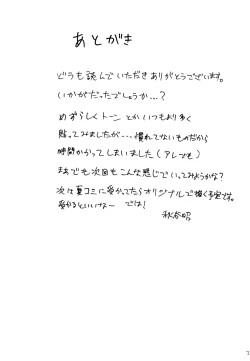 あとがき
どうも読んでいただきありがとうございます。
いかがだったでしょうか…?
めずらしくトーンとかいつもより多く
貼ってみましたが…慣れてないものだから
時間かかってしまいました(アレでも)
まぁでも次回もこんな感じでいってみようかな?
次は夏コミに受かってたらオリジナルで描く予定です。
受かるといいなー では!